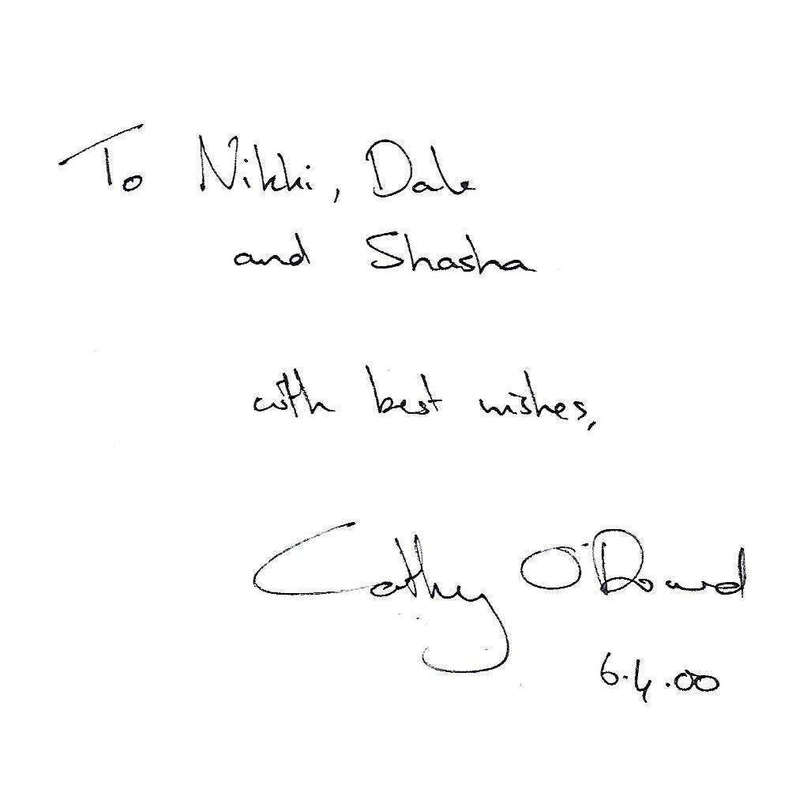 To Nikki, Dale
and Shasha
with best wishes,
Cathy O'Dowd
6.4.00